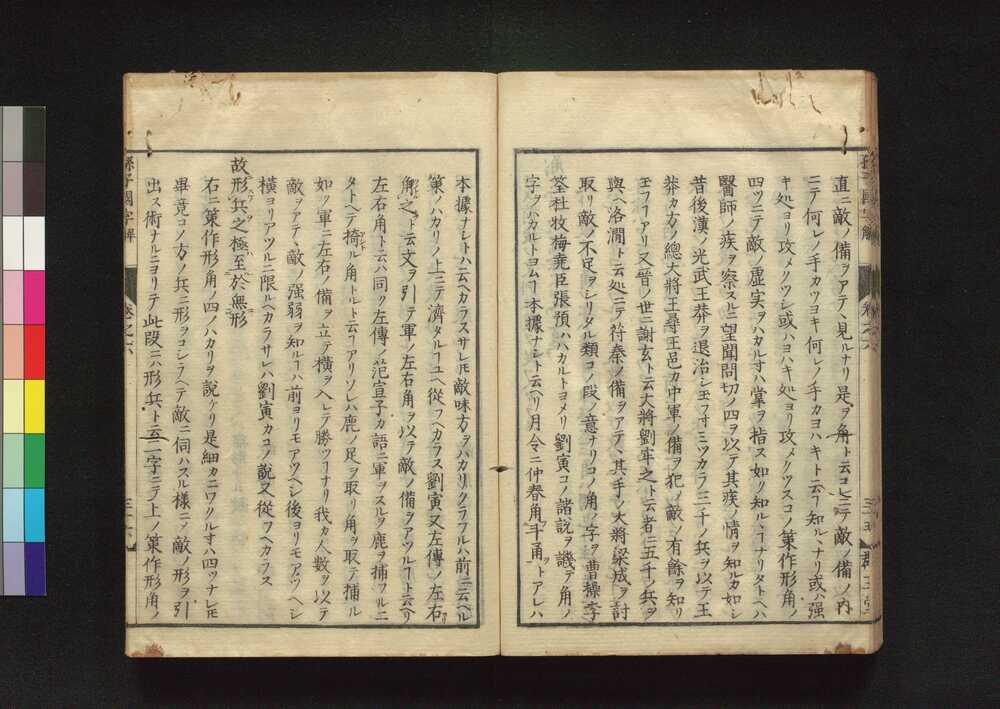 直ニ敵ノ備ヲアテヽ見ルナリ是ヲ角ト云コレニテ敵ノ備ノ内
ニテ何レノ手カツヨキ何レノ手カヨハキト云ヿ知ルヽナリ或ハ强
キ処ヨリ攻メクツシ或ハヨハキ処ヨリ攻メクツスコノ策作形角ノ
四ツニテ敵ノ虚実ヲハカルヿハ掌ヲ指ス如ク知ルヽヿナリタトヘハ
醫師ノ疾ヲ察スルニ望聞問切ノ四ヲ以テ其疾ノ情ヲ知ルカ如シ
昔後漢ノ光武王莽ヲ退治シ玉フ寸ミツカラ三千ノ兵ヲ以テ王
莽カ方ノ總大將王尋王邑カ中軍ノ備ヲ犯ノ敵ノ有餘ヲ知リ
玉フヿアリ又晉ノ世ニ謝玄ト云大將劉牢之ト云者ニ五千ノ兵ヲ
與ヘ洛澗ト云処ニテ符秦ノ備ヲアテヽ其手ノ大將梁成ヲ討
取リ敵ノ不足ヲシリタル類コノ段ノ意ナリコノ角ノ字ヲ曹操李
筌杜牧梅堯臣張預ハハカルトヨメリ劉寅コノ諸說ヲ譏テ角ノ
字ヲハカルトヨムヿ本據ナシト云ヘリ月令ニ仲春角斗甬ヲトアレハ
本據ナシトハ云ヘカラスサレ𪜈敵味方ヲハカリクラフルハ前ニ云ヘル
策ノハカリノ上ニテ濟タルユヘ從フヘカラス劉寅又左傳ノ左右
角之ト云文ヲ引テ軍ノ左右角ヲ以テ敵ノ備ヲアツルヿト云ヘリ
左右角ト云ハ同ク左傳ノ范宣子カ語ニ軍ヲスルヲ鹿ヲ捕フルニ
タトヘテ掎ル角トルト云ヿアリソレハ鹿ノ足ヲ取リ角ヲ取テ捕ル
如ク軍ニ左右ノ備ヲ立テ橫ヲ入レテ勝ツヿナリ我カ人數ヲ以テ
敵ヲアテヽ敵ノ强弱ヲ知ルヿハ前ヨリモアツヘシ後ヨリモアツヘシ
橫ヨリアツルニ限ルヘカラサレハ劉寅カコノ說又從フヘカラス
故形兵之極至於無形
右ニ策作形角ノ四ノハカリヲ說ケリ是細カニワクルヿハ四ツナレ𪜈
畢竟コノ方ノ兵ニ形ヲコシラヘテ敵ニ伺ハスル樣ニノ敵ノ形ヲ引
出ス術ナルニヨリテ此段ニハ形兵ト云二字ニテ上ノ策作形角ノ
孫子國字解
卷之六